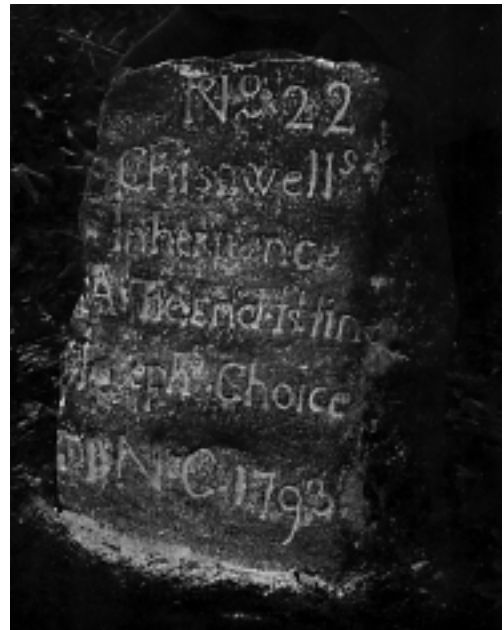 No 22
Chisnwells
Inheritence
At The End 1st line
Josephs Choice
DBN C 1793